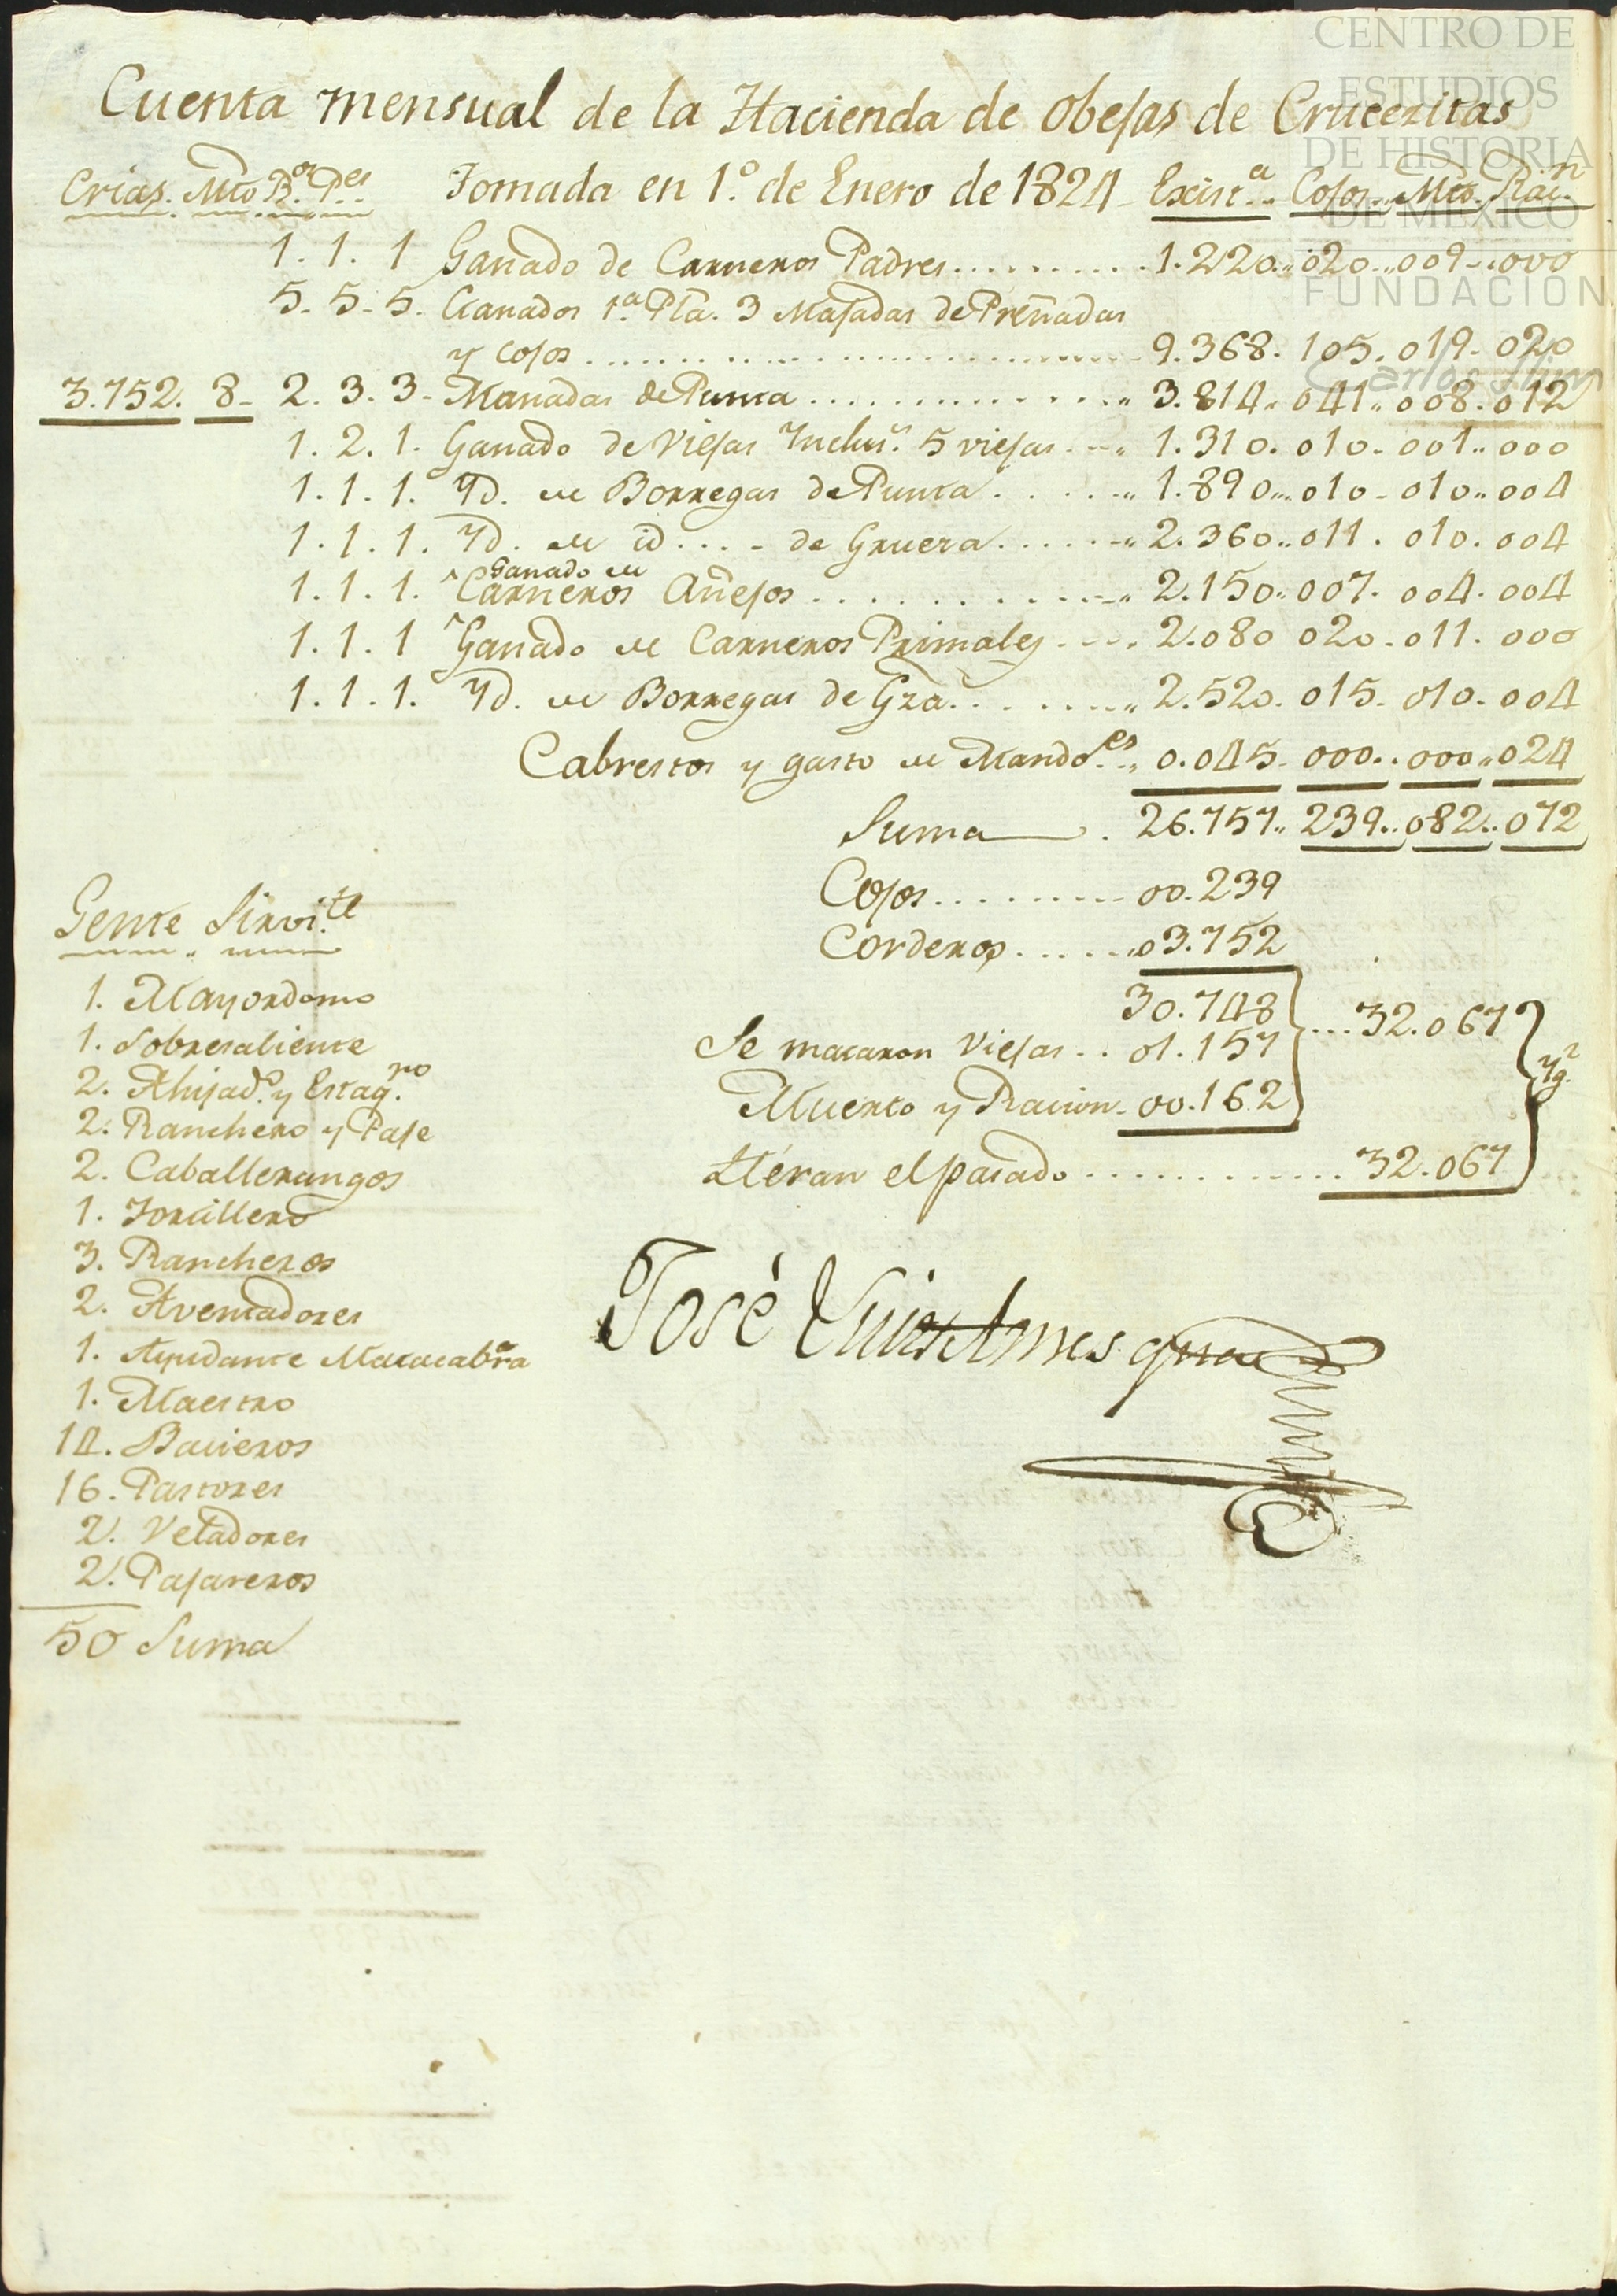 CENTRO DE
ESTUDIOS
DE HISTORIA
DE MÉXICO
FUNDACIÓN
Carlos Slim
Cuenta mensual de la Hacienda de obejas de Crucezitas
Crias. Mto. B.os P.es Tomada en 1.º de Enero de 1824 Exist.a Cojos Mto. Rac.n
1. 1. 1 Ganado de Carneros Padres 1.220 020 009 000
5. 5. 5. Ganados 1.a Pta. 3 Majadas de Preñadas
y cojos 9.368. 105. 019. 020
3.752. 8 2. 3. 3 Manadas de Punta 3.814 041 008 012
1. 2. 1. Ganado de Viejas Inclus.e 5 viejas 1.310. 010. 001 000
1. 1. 1. Yd. de Borregas de Punta 1.890 010 010 004
1. 1. 1. Yd. de id. de Grueza 2.360 011. 010. 004
Ganado de
1. 1. 1. ^Carneros Añejos 2.150 007. 004. 004
1. 1. 1 Ganado de Carneros Primales 2.080 020 011. 000
1. 1. 1. Yd. de Borregas de Gza. 2.520. 015. 010. 004
Cabrestos y gasto de Mando.es 0.045 000 000 024
Suma 26.757 239 082 072
Cojos 00.239
Corderos 03.752
30.748 32.067
Se mataron Viejas 01.157
Muerto y Racion 00.162
Yg.l
Hêran el pasado 32.067
Gente Sirvi.te
1. Mayordomo
1. Sobresaliente
2. Ahijad.r y Estaq.ro
2. Ranchero y Paje
2. Caballerangos
1. Tortillero
3. Rancheros
2. Aventadores
1. Ayudante Matacabra
1. Maestro
14. Bacieros
16. Pastores
2. Veladores
2. Pajareros
50 Suma
José Luis